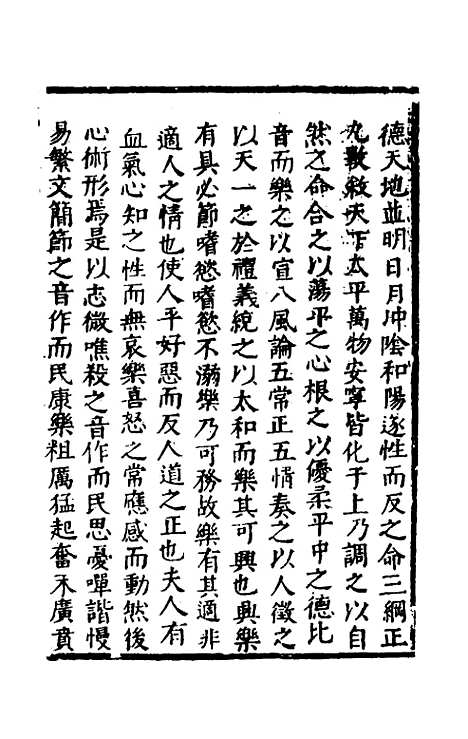 德天地並明日月冲陰和陽遂性而反之命三綱正
九數敘天下太平萬物安寧皆化于上乃調之以自
然之命合之以蕩平之心根之以優柔平中之德比
音而樂之以宣八風論五常正五情奏之以人徵之
以天一之於禮義統之以太和而樂其可興也興樂
有具必節嗜慾嗜慾不溺樂乃可務故樂有其適非
適人之情也使人平好惡而反人道之正也夫人有
血氣心知之性而無哀樂喜怒之常應感而動然後
心術形焉是以志微噍殺之音作而民思憂嘽諧慢
易繁文簡節之音作而民康樂粗厲猛起奮末廣賁